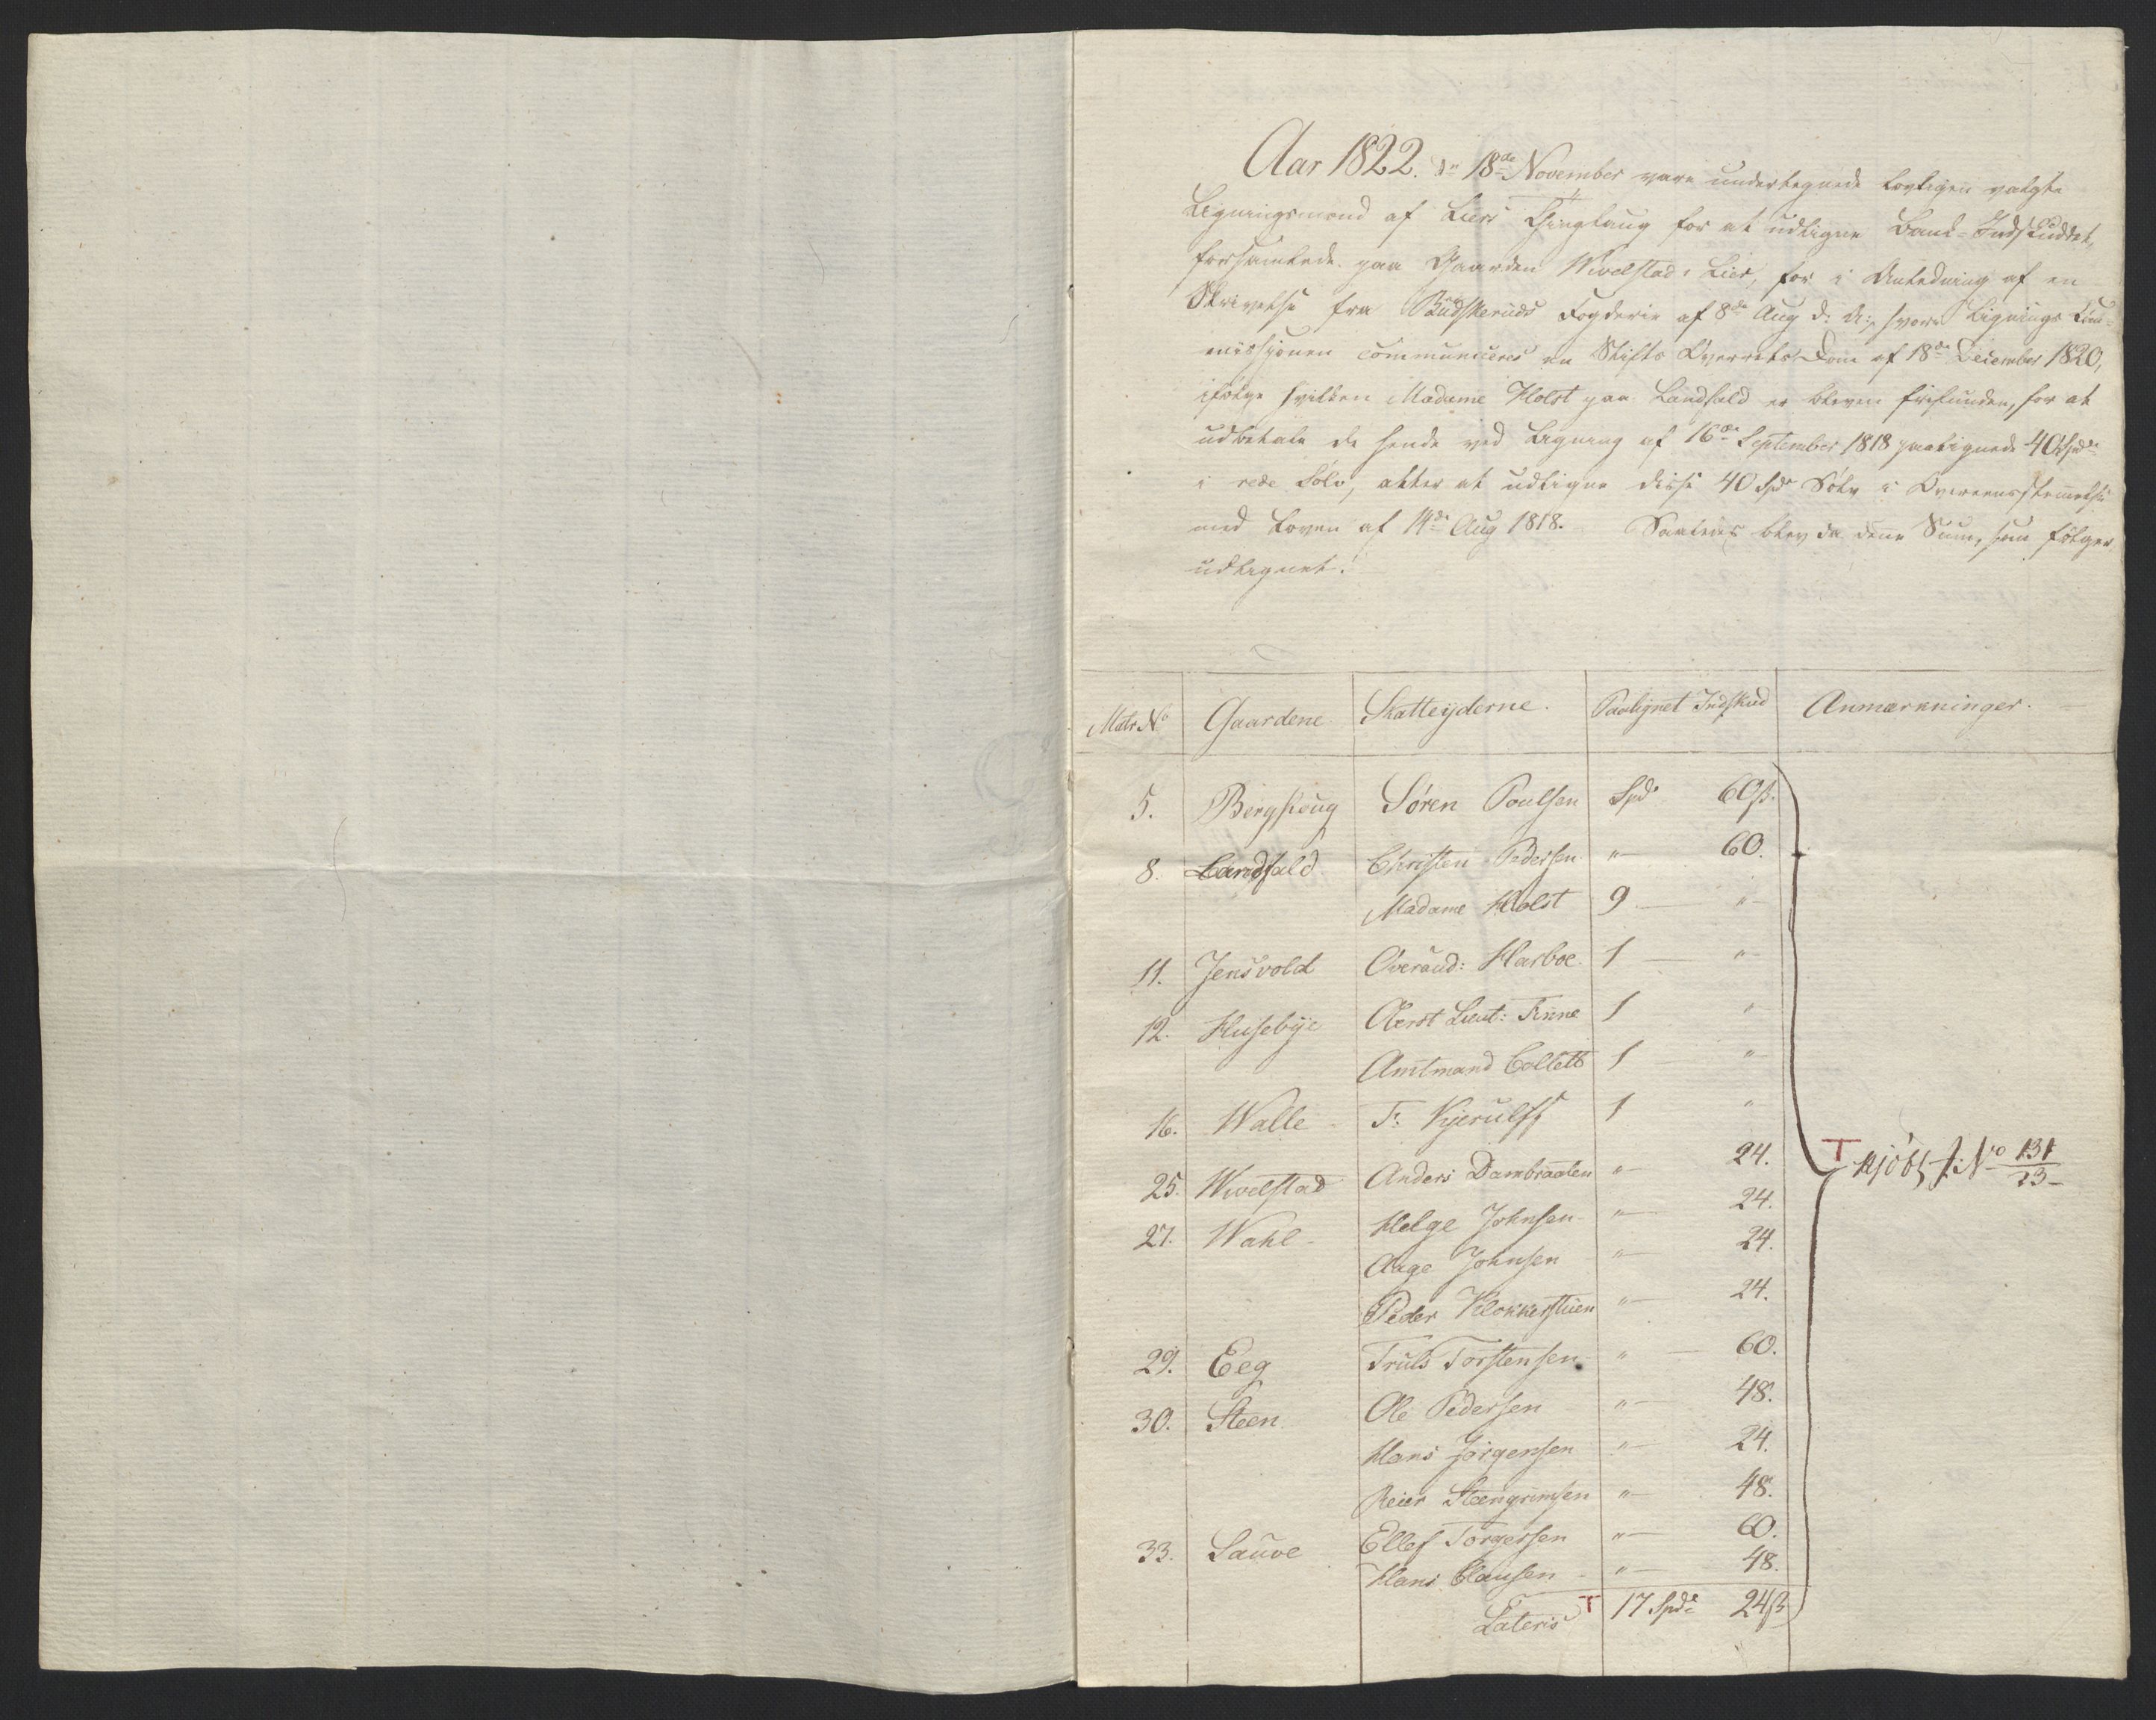 Aar 1822. d. 18de November vare undertegnede lovligen valgte
Ligningsmænd af Liers Thinglaug for at udligne Bank-Indskuddet,
forsamlede paa Gaarden Wivelstad i Lier, for i Anledning af en
Skrivelse fra Budskeruds Fogderie af 8de Aug d: A:, hvori Lignings Com-
missjonen communiceres en Stifts Overrets Dom af 18de December 1820,
ifølge hvilken Madame Holst paa Landfald er bleven frifunden, for at
udbetale de hende ved Ligning af 16de September 1818 paalignede 40 Spd
i rede Sølv, atter at udligne disse 40 Spd Sølv i Overeensstemmelse
med Loven af 14de Aug 1818. Saaledes blev da denne Sum, som følger,
udlignet:
Matr No Gaardene Skatteyderne. Paalignet Indskud Anmærkninger.
5. Bergfloug Søren Poulsen Spd 60ß.
8. Landfald Christen Pedersen " 60.
Madame Holst 9 "
11. Jensvold Overaud: Harboe 1 "
12. Husebye Oberst Lieut: Finne 1 "
Amtmand Collett 1 "
16. Walle F: Kjerulff 1 "
25. Wivelstad Anders Dambraaten " 24.
27. Wahl Helge Johnsen " 24.
Aage Johnsen " 24.
Peder Klokkerstuen " 24.
29. Eeg Truls Torstensen " 60.
30. Steen Ole Pedersen " 48.
Hans Jørgensen " 24.
Reier Steengrimsen " 48.
33. Sauve Ellef Torgersen " 60.
Hans Clausen " 48.
Lateris T 17 Spd 24ß
T No 131
23